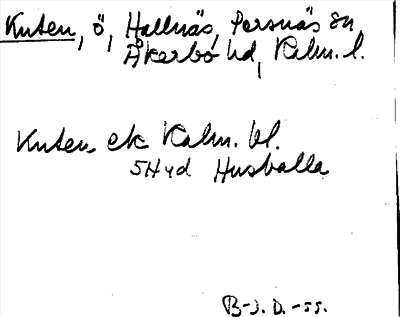 Knuten, ö, Hallnäs, Persnäs sn,
Åkerbo hd, Kalm. l.
Knuten ek Kalm. bl.
5Hyd Husvalla
B-J. D. -55.